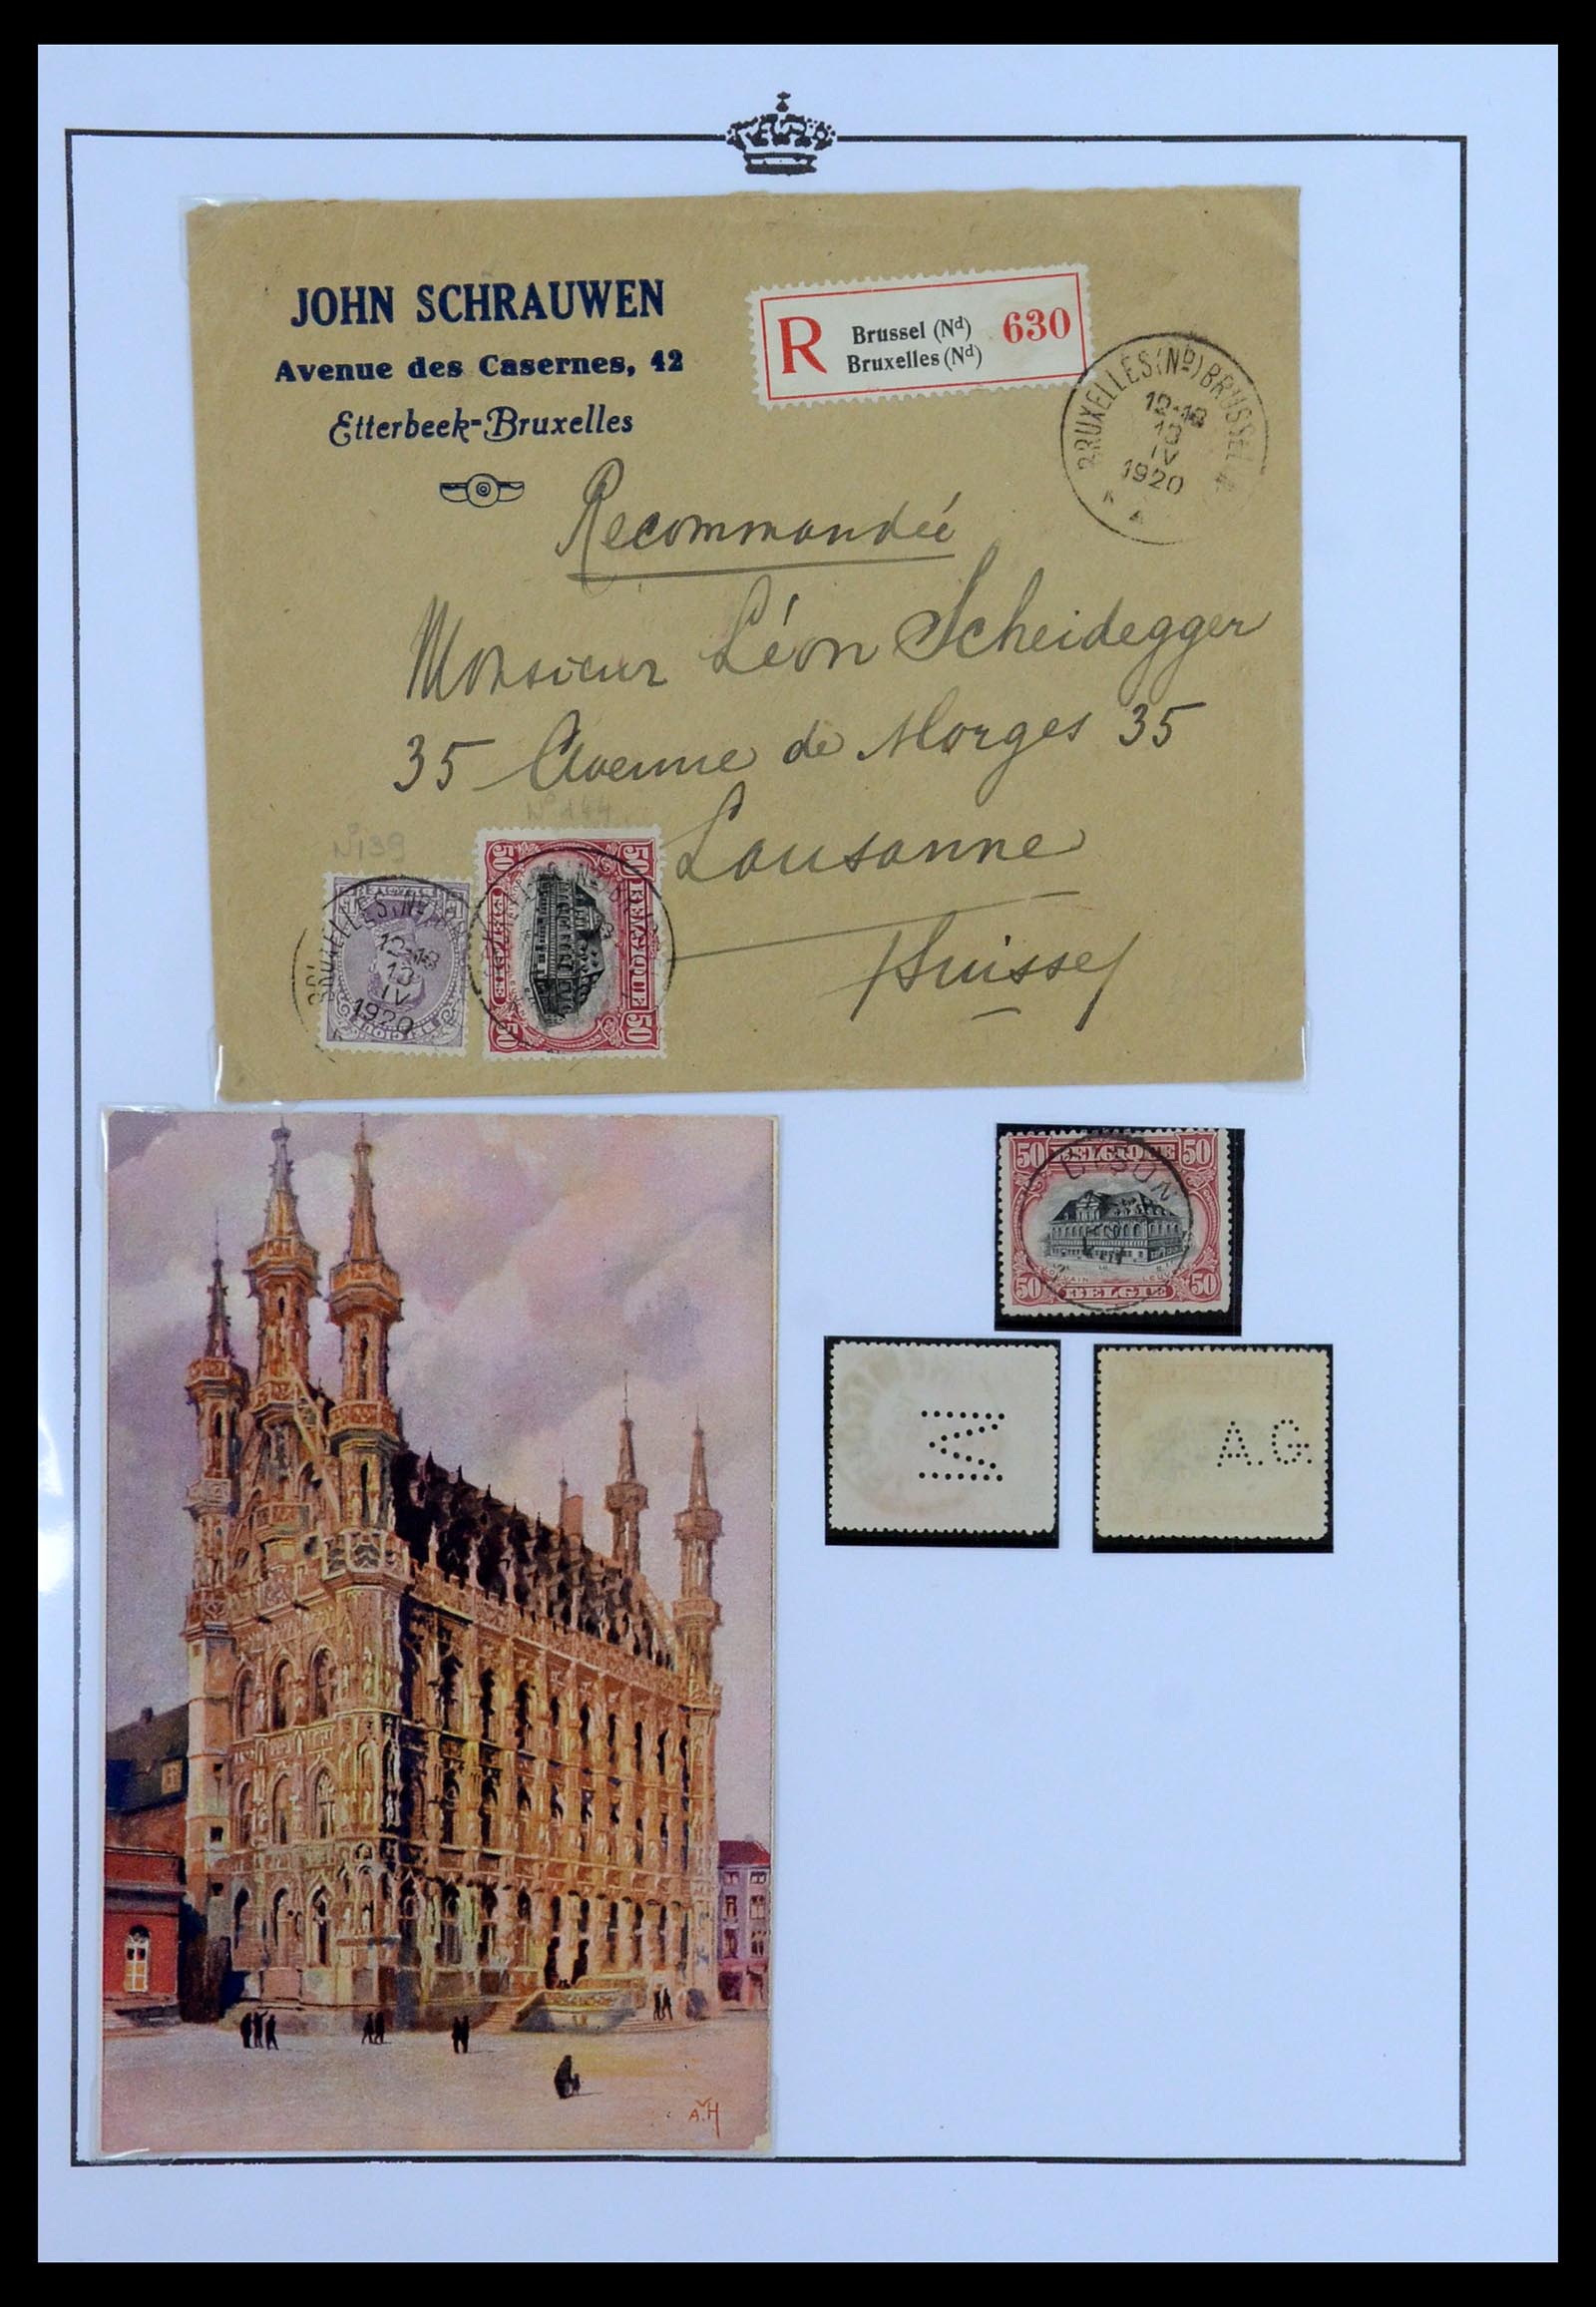 JOHN SCHRAUWEN
Avenue des Casernes, 42
Etterbeek-Bruxelles
R Brussel (Nd) 630
Bruxelles (Nd)
BRUXELLES (ND) BRUSSEL
12-13
13
IV
1920
Recommandée
Monsieur Léon Scheidegger
35 Avenue de Morges 35
Lausanne
Suisse
No 139
No 144
BRUXELLES (ND)
12-13
13
IV
1920
50 BELGIQUE 50
50 BELGIË 50
50 BELGIQUE 50
DISON
LOUVAIN
50 BELGIË 50
M
A.G.
A.V.H